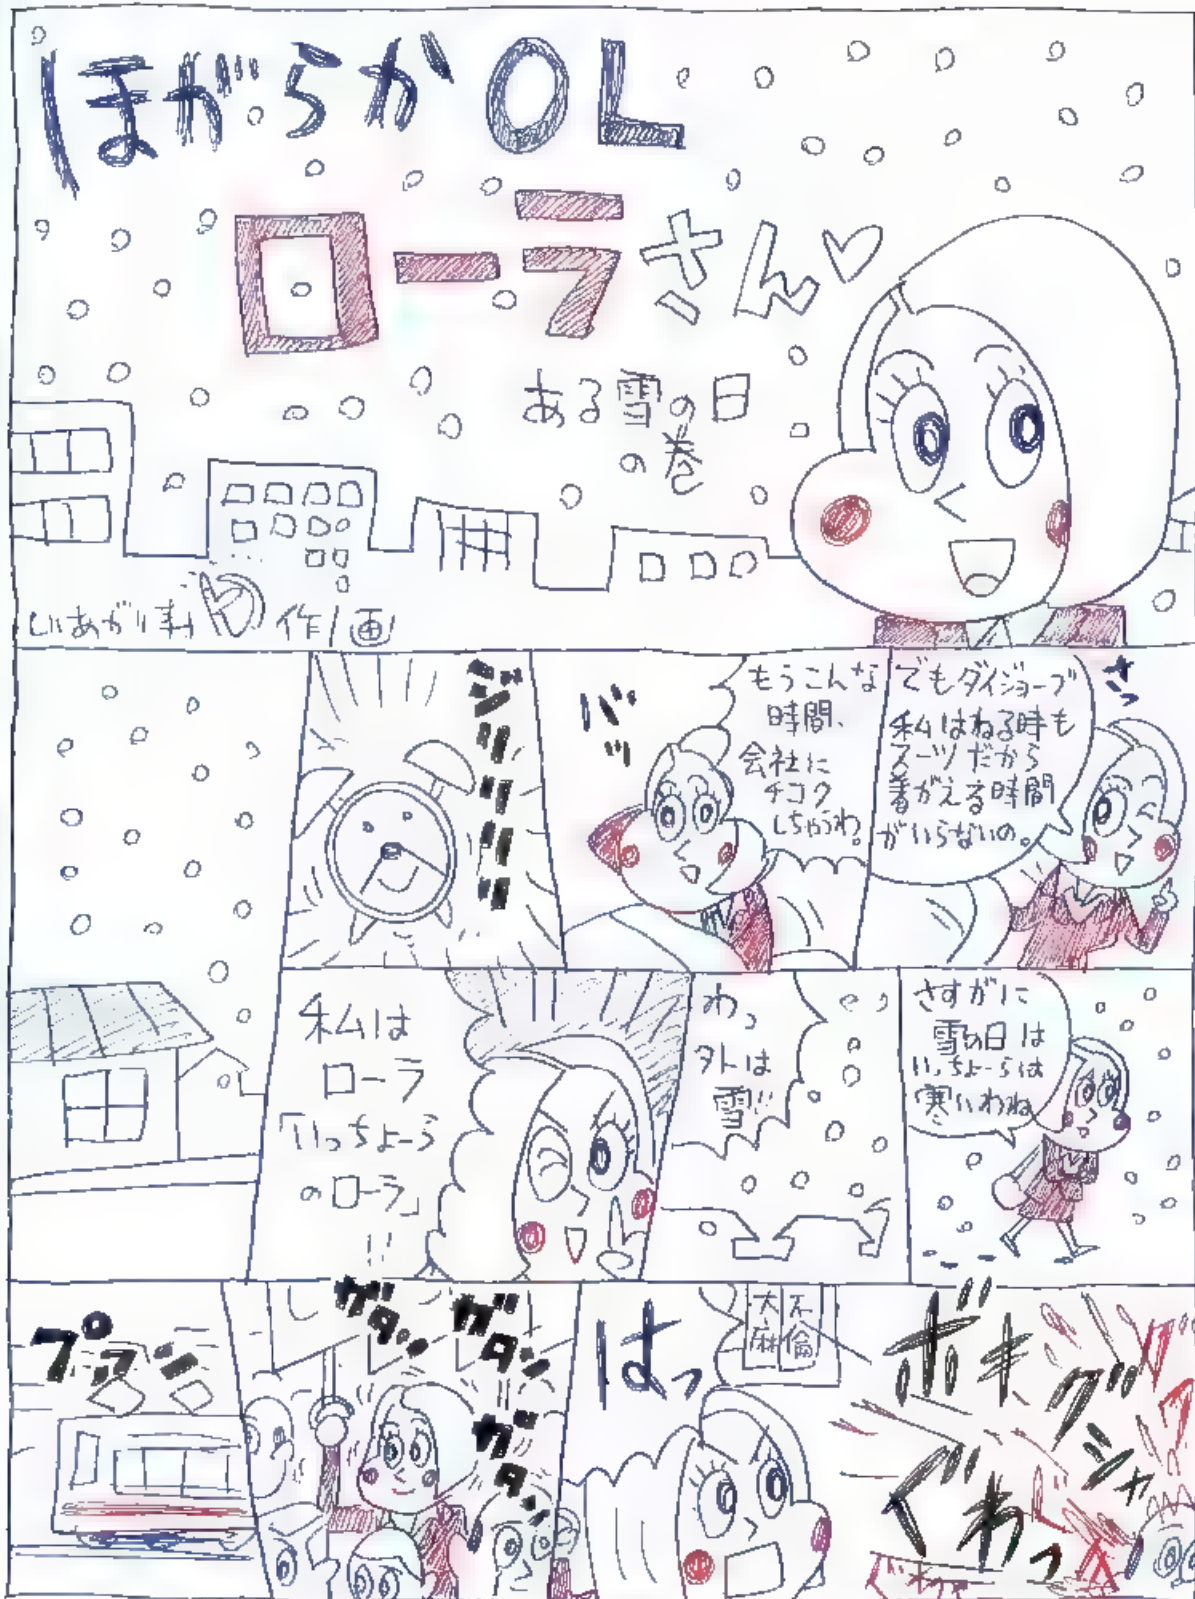 ほがらかOL
ローラさん♡
ある雪の日
の巻
しりあがり寿
作/画
ジリリリリ
バッ
もうこんな
時間、
会社に
チコク
しちゃうわ。
さっ
でもダイジョーブ
私はねる時も
スーツだから
着がえる時間
がいらないの。
私は
ローラ
「いっちょーら
のローラ」
!!
わっ
外は
雪!!
さすがに
雪の日は
いっちょーらは
寒いわね
プァン
ガタン
ガタン
ガタン
はっ
不倫
大麻
ボキ
グシャ
ぐわっ